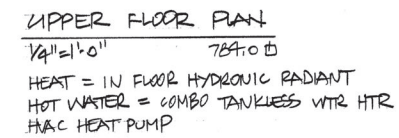 UPPER FLOOR PLAN
1/4"=1'-0" 784.0 ⏍
HEAT = IN FLOOR HYDRONIC RADIANT
HOT WATER = COMBO TANKLESS WTR HTR
HVAC HEAT PUMP